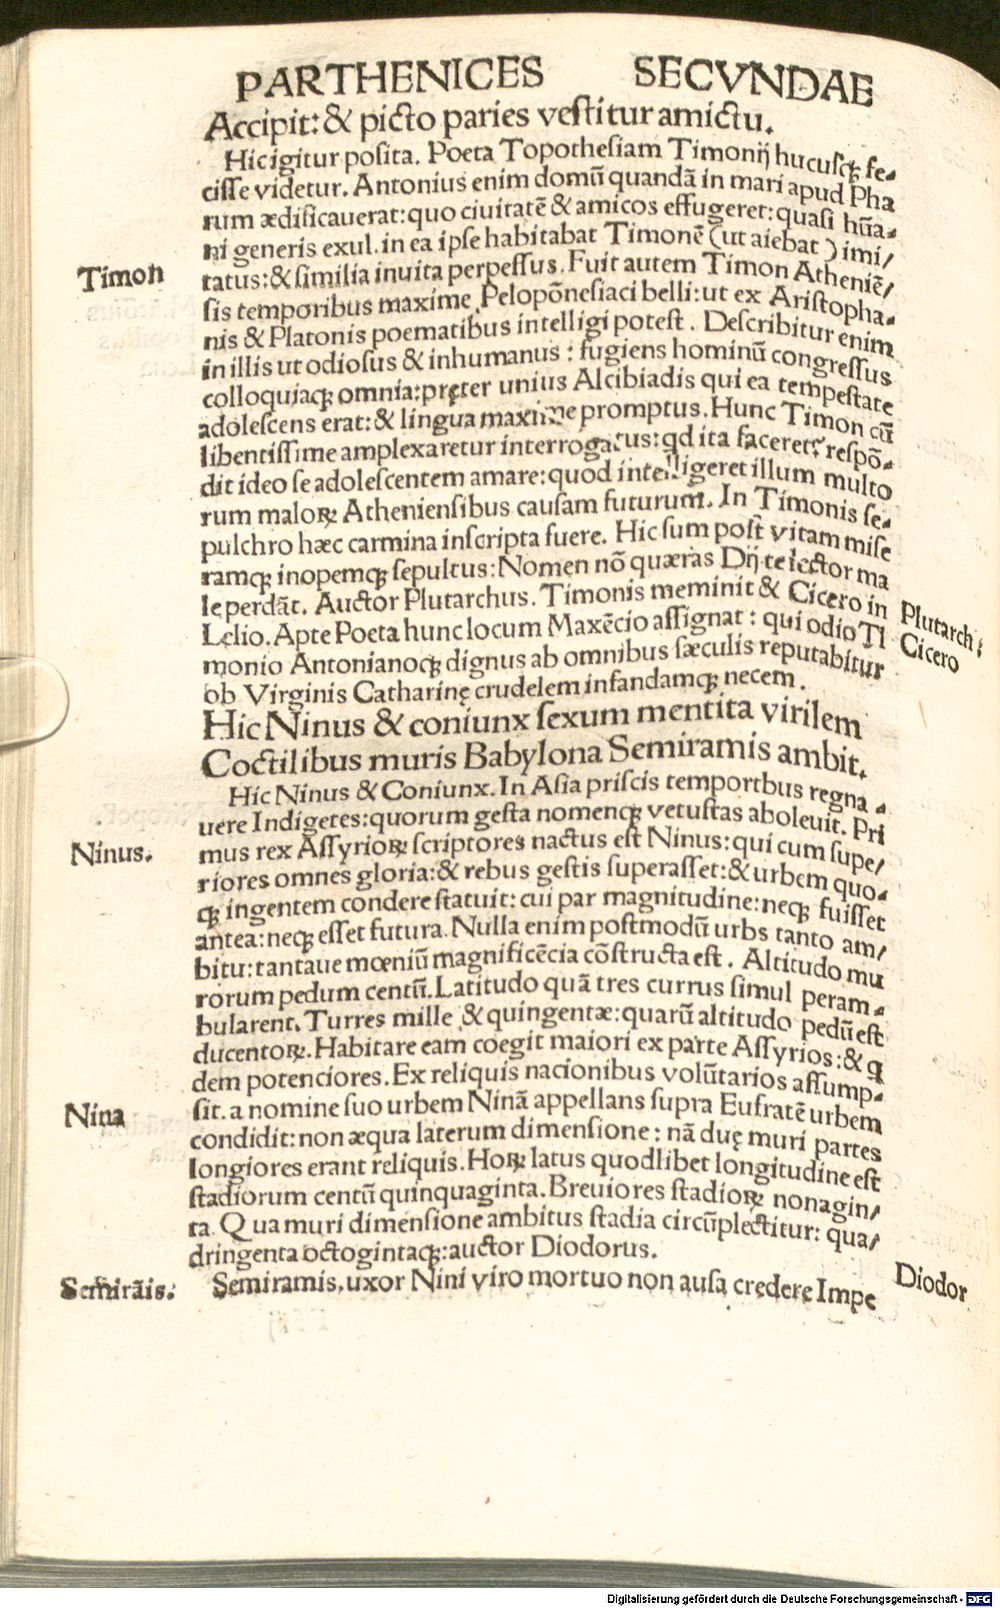 PARTHENICES SECVNDAE
Accipit: & picto paries vestitur amictu.
Hic igitur posita. Poeta Topothesiam Timonij hucusqꝫ fe-
cisse videtur. Antonius enim domū quandā in mari apud Pha
rum ædificauerat: quo ciuitatē & amicos effugeret: quasi hūa-
ni generis exul. in ea ipse habitabat Timonē (ut aiebat) imi/
Timon
tatus: & similia inuita perpessus. Fuit autem Timon Atheniē/
sis temporibus maxime Pelopōnesiaci belli: ut ex Aristopha-
nis & Platonis poematibus intelligi potest. Describitur enim
in illis ut odiosus & inhumanus: fugiens hominū congressus
colloquiaqꝫ omnia: pręter unius Alcibiadis qui ea tempestate
adolescens erat: & lingua maxime promptus. Hunc Timon cū
libentissime amplexaretur interrogatus: qd ita faceret: respō-
dit ideo se adolescentem amare: quod intelligeret illum multo
rum maloꝝ Atheniensibus causam futurum. In Timonis se-
pulchro hæc carmina inscripta fuere. Hic sum post vitam mise
ramqꝫ inopemqꝫ sepultus: Nomen nō quæras Dij te lector ma
le perdāt. Auctor Plutarchus. Timonis meminit & Cicero in
Plutarch:
Lelio. Apte Poeta hunc locum Maxēcio assignat: qui odio TI
Cicero
monio Antonianoqꝫ dignus ab omnibus sæculis reputabitur
ob Virginis Catharinę crudelem infandamqꝫ necem.
Hic Ninus & coniunx sexum mentita virilem
Coctilibus muris Babylona Semiramis ambit.
Hic Ninus & Coniunx. In Asia priscis temporibus regna-
uere Indigetes: quorum gesta nomenqꝫ vetustas aboleuit. Pri
Ninus.
mus rex Assyrioꝝ scriptores nactus est Ninus: qui cum supe/
riores omnes gloria: & rebus gestis superasset: & urbem quo-
qꝫ ingentem condere statuit: cui par magnitudine: neqꝫ fuisset
antea: neqꝫ esset futura. Nulla enim postmodū urbs tanto am/
bitu: tantaue mœniū magnificēcia cōstructa est. Altitudo mu
rorum pedum centū. Latitudo quā tres currus simul peram-
bularent. Turres mille & quingentæ: quarū altitudo pedū est
ducentoꝝ. Habitare eam coegit maiori ex parte Assyrios: & q
dem potenciores. Ex reliquis nacionibus volūtarios assump-
Nina
sit. a nomine suo urbem Ninā appellans supra Eufratē urbem
condidit: non æqua laterum dimensione: nā duę muri partes
longiores erant reliquis. Hoꝝ latus quodlibet longitudine est
stadiorum centū quinquaginta. Breuiores stadioꝝ nonagin/
ta. Qua muri dimensione ambitus stadia circūplectitur: qua/
dringenta octogintaqꝫ: auctor Diodorus.
Diodor
Semirāis.
Semiramis. uxor Nini viro mortuo non ausa credere Impe
Digitalisierung gefördert durch die Deutsche Forschungsgemeinschaft - DFG